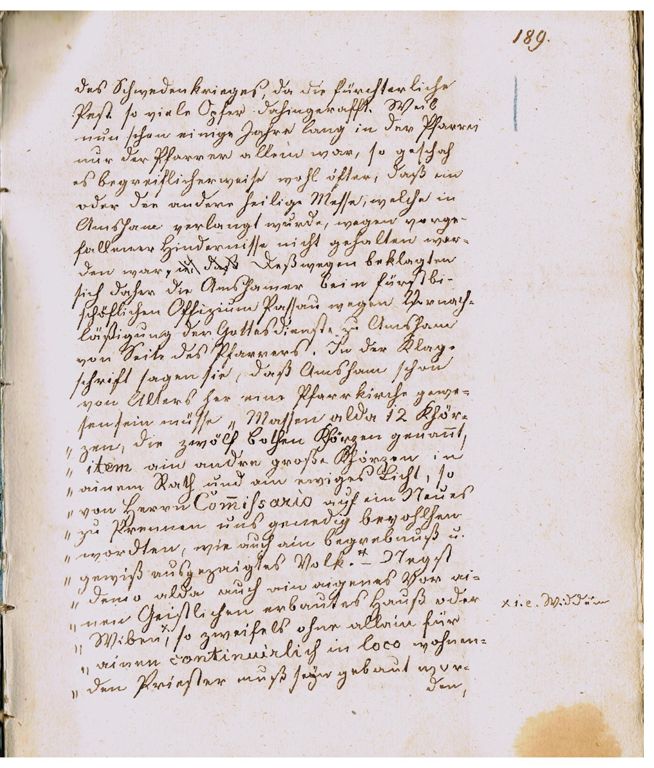 189.
des Schwedenkrieges, da die fürchterliche
Pest so viele Opfer dahingerafft. Weil
nun schon einige Jahre lang in der Pfarrei
nur der Pfarrer allein war, so geschah
es begreiflicherweise wohl öfter, daß ein
oder die andere heilige Messe, welche in
Amsham verlangt wurde, wegen vorge-
fallener Hindernisse nicht gehalten wor-
den waren. Deßwegen beklagten
sich daher die Amshamer beim fürstbi-
schöflichen Offizium Passau wegen Vernach-
läßigung der Gottesdienste zu Amsham
von Seite des Pfarrers. In der Klag-
schrift sagen sie, daß Amsham schon
von Alters her eine Pfarrkirche gewe-
sen sein müsse „Massen alda 12 Khör-
„ zen, die zwölf Bothen Khörzen genannt,
„ item ain andre große Khörzen in
„ ainem Rath und ain ewiges Licht, so
„ von Herrn Commissario auf ein Neues
„ zu Prennen uns genedig bevohlhen
„ wordten, wie auch ain begrebnuß u.
„ gewiß ausgezaigtes Volk." – Negst
„ deme alda auch ain aigenes vor ai-
„ nen Geistlichen erbautes Hauß oder
„ Wiben x, so zweifels ohne allain für
x i. e. Widdum
„ ainen continuirlich in loco wohnen-
„ den Priester muß seyn gebaut wor-
den,